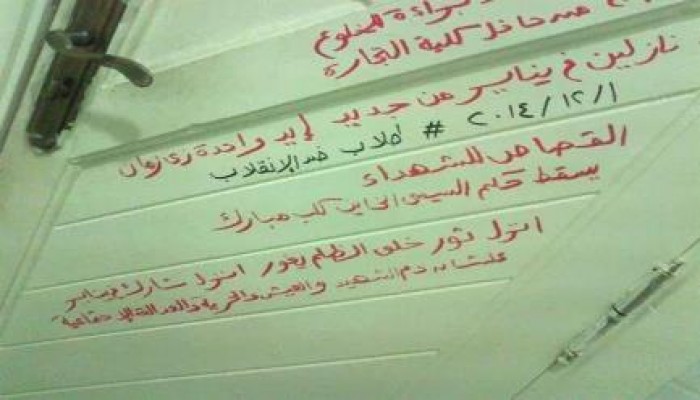 براءة المخلوع
من داخل كلية التجارة
نازلين في يناير من جديد إيد واحدة زى زمان
٢٠١٤/١٢/١ # طلاب ضد الإنقلاب
القصاص للشهداء
يسقط حكم السيسى
كلب مبارك
انزل ثور خلى الظلم يغور انزل شارك
علشان دم الشهيد والعيش والحرية والعدالة الإجتماعية